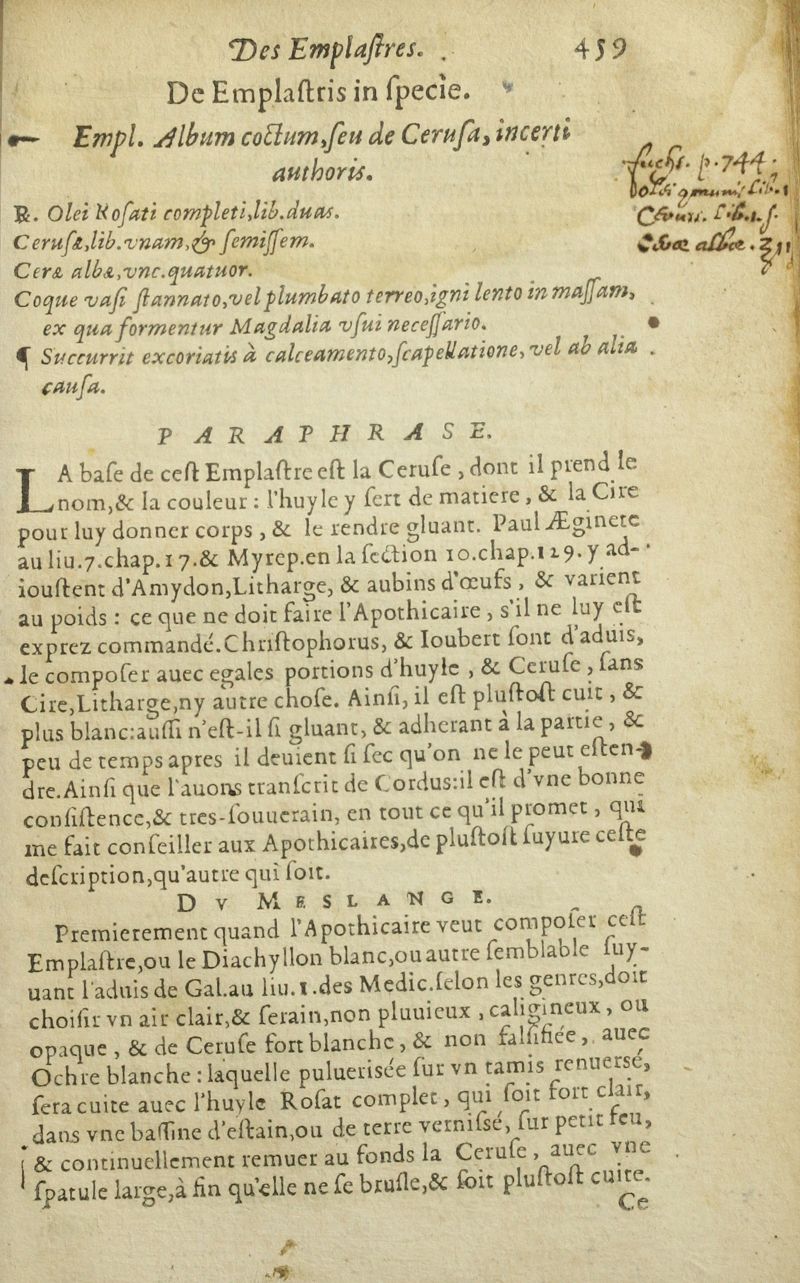 Des Emplaſtres. 459
De Emplaſtris in ſpecie.
Empl. Album coctum, ſeu de Ceruſa, incerti
authoris.
p. 744
℞. Olei Roſati completi, lib. duas.
Ceruſæ, lib. vnam, & ſemiſſem.
Ceræ albæ, vnc. quatuor.
Coque vaſi ſtannato, vel plumbato terreo, igni lento in maſſam,
ex qua formentur Magdalia vſui neceſſario.
¶ Succurrit excoriatis à calceamento, ſcapellatione, vel ab alia
cauſa.
PARAPHRASE.
LA baſe de ceſt Emplaſtre eſt la Ceruſe, dont il prend le
nom, & la couleur : l'huyle y ſert de matiere, & la Cire
pour luy donner corps, & le rendre gluant. Paul Æginete
au liu. 7. chap. 17. & Myrep. en la ſection 10. chap. 129. y ad-
iouſtent d'Amydon, Litharge, & aubins d'œufs, & varient
au poids : ce que ne doit faire l'Apothicaire, s'il ne luy eſt
exprez commandé. Chriſtophorus, & Ioubert ſont d'aduis,
le compoſer auec egales portions d'huyle, & Ceruſe, ſans
Cire, Litharge, ny autre choſe. Ainſi, il eſt pluſtoſt cuit, &
plus blanc: auſſi n'eſt-il ſi gluant, & adherant à la partie, &
peu de temps apres il deuient ſi ſec qu'on ne le peut eſten-
dre. Ainſi que l'auons tranſcrit de Cordus: il eſt d'vne bonne
conſiſtence, & tres-ſouuerain, en tout ce qu'il promet, qui
me fait conſeiller aux Apothicaires, de pluſtoſt ſuyure ceſte
deſcription, qu'autre qui ſoit.
DV MESLANGE.
Premierement quand l'Apothicaire veut compoſer ceſt
Emplaſtre, ou le Diachyllon blanc, ou autre ſemblable ſuy-
uant l'aduis de Gal. au liu. 1. des Medic. ſelon les genres, doit
choiſir vn air clair, & ſerain, non pluuieux, caligineux, ou
opaque, & de Ceruſe fort blanche, & non falſifiée, auec
Ochre blanche : laquelle pulueriſée ſur vn tamis renuersé,
ſera cuite auec l'huyle Roſat complet, qui ſoit fort clair,
dans vne baſſine d'eſtain, ou de terre verniſsé, ſur petit feu,
& continuellement remuer au fonds la Ceruſe, auec vne
ſpatule large, à fin qu'elle ne ſe bruſle, & ſoit pluſtoſt cuite.
Ce